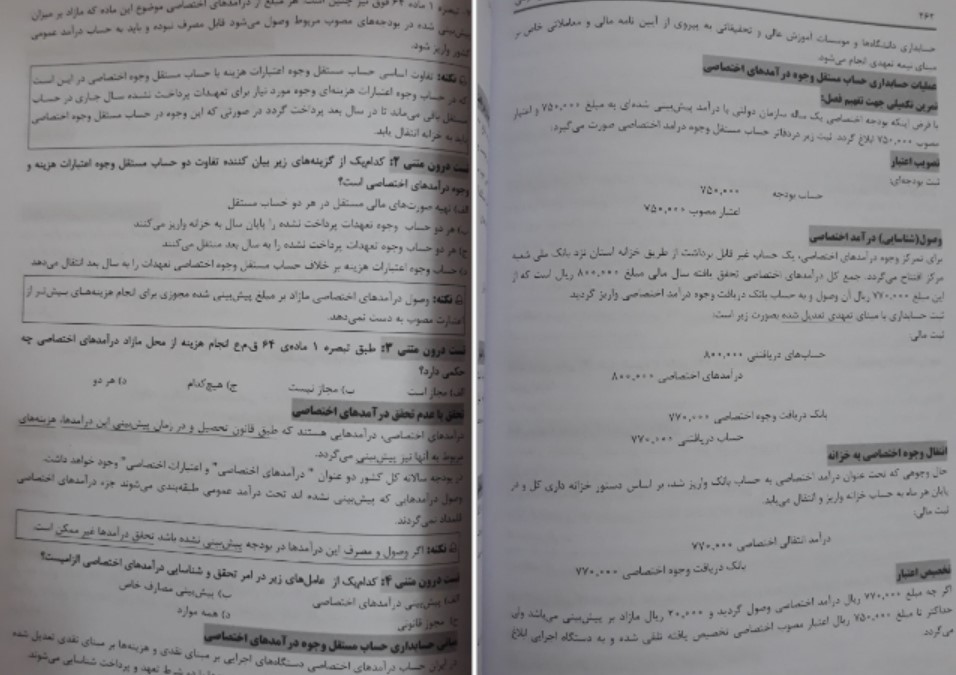 ۲۶۲
حسابداری دانشگاه‌ها و موسسات آموزش عالی و تحقیقاتی به پیروی از آیین نامه مالی و معاملاتی خاص بر
مبنای نیمه تعهدی انجام می‌شود.
عملیات حسابداری حساب مستقل وجوه درآمدهای اختصاصی
تمرین تکمیلی جهت تفهیم فصل:
با فرض اینکه بودجه اختصاصی یک ساله سازمان دولتی با درآمد پیش‌بینی شده‌ای به مبلغ ۷۵۰,۰۰۰ و اعتبار
مصوب ۷۵۰,۰۰۰ ابلاغ گردد. ثبت زیر دردفاتر حساب مستقل وجوه درامد اختصاصی صورت می‌گیرد:
تصویب اعتبار
ثبت بودجه‌ای:
حساب بودجه ۷۵۰,۰۰۰
اعتبار مصوب ۷۵۰,۰۰۰
وصول(شناسایی) درآمد اختصاصی
برای تمرکز وجوه درآمدهای اختصاصی، یک حساب غیر قابل برداشت از طریق خزانه استان نزد بانک ملی شعبه
مرکز افتتاح می‌گردد. جمع کل درآمدهای اختصاصی تحقق یافته سال مالی مبلغ ۸۰۰,۰۰۰ ریال است که از
این مبلغ ۷۷۰,۰۰۰ ریال آن وصول و به حساب بانک دریافت وجوه درآمد اختصاصی واریز گردید.
ثبت حسابداری با مبنای تعهدی تعدیل شده بصورت زیر است:
ثبت مالی
حساب‌های دریافتنی ۸۰۰,۰۰۰
درآمدهای اختصاصی ۸۰۰,۰۰۰
بانک دریافت وجوه اختصاصی ۷۷۰,۰۰۰
حساب دریافتنی ۷۷۰,۰۰۰
انتقال وجوه اختصاصی به خزانه
حال وجوهی که تحت عنوان درآمد اختصاصی به حساب بانک واریز شد، بر اساس دستور خزانه داری کل و در
پایان هر ماه به حساب خزانه واریز و انتقال می‌یابد.
ثبت مالی:
درآمد انتقالی اختصاصی ۷۷۰,۰۰۰
بانک دریافت وجوه اختصاصی ۷۷۰,۰۰۰
تخصیص اعتبار
اگر چه مبلغ ۷۷۰,۰۰۰ ریال درآمد اختصاصی وصول گردید و ۲۰,۰۰۰ ریال مازاد بر پیش‌بینی می‌باشد ولی
حداکثر تا مبلغ ۷۵۰,۰۰۰ ریال اعتبار مصوب اختصاصی تخصیص یافته تلقی شده و به دستگاه اجرایی ابلاغ
می‌گردد.
تبصره ۱ ماده ۶۴ فوق نیز چنین است: هر مبلغ از درآمدهای اختصاصی موضوع این ماده که مازاد بر میزان
پیش‌بینی شده در بودجه‌های مصوب مربوط وصول می‌شود قابل مصرف نبوده و باید به حساب درآمد عمومی
کشور واریز شود.
نکته: تفاوت اساسی حساب مستقل وجوه اعتبارات هزینه با حساب مستقل وجوه اختصاصی در این است
که در حساب وجوه اعتبارات هزینه‌ای وجوه مورد نیاز برای تعهدات پرداخت نشده سال جاری در حساب
مستقل باقی می‌ماند تا در سال بعد پرداخت گردد در صورتی که این وجوه در حساب مستقل وجوه اختصاصی
باید به خزانه انتقال یابد.
تست درون متنی ۲: کدام‌یک از گزینه‌های زیر بیان کننده تفاوت دو حساب مستقل وجوه اعتبارات هزینه و
وجوه درآمدهای اختصاصی است؟
الف) تهیه صورت‌های مالی مستقل در هر دو حساب مستقل
ب) هر دو حساب وجوه تعهدات پرداخت نشده را پایان سال به خزانه واریز می‌کنند
ج) هر دو حساب وجوه تعهدات پرداخت نشده را به سال بعد منتقل می‌کنند
د) حساب وجوه اعتبارات هزینه بر خلاف حساب مستقل وجوه اختصاصی تعهدات را به سال بعد انتقال می‌دهد
نکته: وصول درآمدهای اختصاصی مازاد بر مبلغ پیش‌بینی شده مجوزی برای انجام هزینه‌های بیش‌تر از
اعتبارت مصوب به دست نمی‌دهد.
تست درون متنی ۳: طبق تبصره ۱ ماده‌ی ۶۴ ق.م.ع انجام هزینه از محل مازاد درآمدهای اختصاصی چه
حکمی دارد؟
الف) مجاز است ب) مجاز نیست ج) هیچ‌کدام د) هر دو
تحقق یا عدم تحقق درآمدهای اختصاصی
درآمدهای اختصاصی، درآمدهایی هستند که طبق قانون تحصیل و در زمان پیش‌بینی این درآمدها، هزینه‌های
مربوط به آنها نیز پیش‌بینی می‌گردد.
در بودجه سالانه کل کشور دو عنوان " درآمدهای اختصاصی" و اعتبارات اختصاصی" وجود خواهد داشت.
وصول درآمدهایی که پیش‌بینی نشده اند تحت درآمد عمومی طبقه‌بندی می‌شوند جزء درآمدهای اختصاصی
قلمداد نمی‌گردند.
نکته: اگر وصول و مصرف این درآمدها در بودجه پیش‌بینی نشده باشد تحقق درآمدها غیر ممکن است.
تست درون متنی ۴: کدام‌یک از عامل‌های زیر در امر تحقق و شناسایی درآمدهای اختصاصی الزامیست؟
الف) پیش‌بینی درآمدهای اختصاصی ب) پیش‌بینی مصارف خاص
ج) مجوز قانونی د) همه موارد
مبانی حسابداری حساب مستقل وجوه درآمدهای اختصاصی
در ایران حساب درآمدهای اختصاصی دستگاه‌های اجرایی بر مبنای نقدی و هزینه‌ها بر مبنای نقدی تعدیل شده
دو شرط تعهد و پرداخت شناسایی می‌شوند.